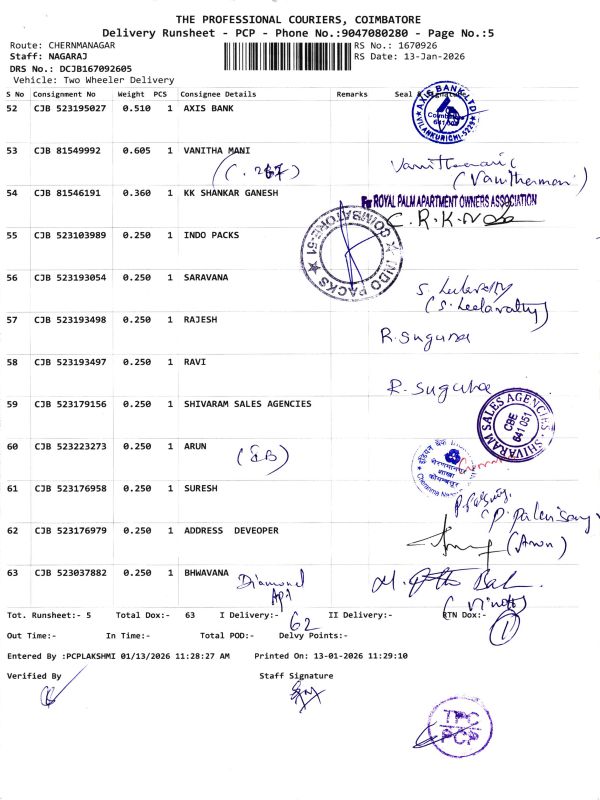 THE PROFESSIONAL COURIERS, COIMBATORE
Delivery Runsheet - PCP - Phone No.:9047080280 - Page No.:5
Route: CHERNMANAGAR RS No.: 1670926
Staff: NAGARAJ RS Date: 13-Jan-2026
DRS No.: DCJB167092605
Vehicle: Two Wheeler Delivery
S No Consignment No Weight PCS Consignee Details Remarks Seal & Signature
52 CJB 523195027 0.510 1 AXIS BANK
AXIS BANK LTD
Coimbatore
VILANKURICHI-5229
53 CJB 81549992 0.605 1 VANITHA MANI
(Vanithamani)
54 CJB 81546191 0.360 1 KK SHANKAR GANESH
For ROYAL PALM APARTMENT OWNERS ASSOCIATION
C.R.K.
55 CJB 523103989 0.250 1 INDO PACKS
INDO PACKS
COIMBATORE-51
56 CJB 523193054 0.250 1 SARAVANA
(S. Leelavathy)
57 CJB 523193498 0.250 1 RAJESH
R. Suguna
58 CJB 523193497 0.250 1 RAVI
R. Suguna
59 CJB 523179156 0.250 1 SHIVARAM SALES AGENCIES
SHIVARAM SALES AGENCIES
CBE
641 051
60 CJB 523223273 0.250 1 ARUN
(EB)
61 CJB 523176958 0.250 1 SURESH
62 CJB 523176979 0.250 1 ADDRESS DEVEOPER
(Arun)
63 CJB 523037882 0.250 1 BHWAVANA
Diamond
Apt
(Vinoth)
Tot. Runsheet:- 5 Total Dox:- 63 I Delivery:- 62 II Delivery:- RTN Dox:- 1
Out Time:- In Time:- Total POD:- Delvy Points:-
Entered By :PCPLAKSHMI 01/13/2026 11:28:27 AM Printed On: 13-01-2026 11:29:10
Verified By Staff Signature
TPC
PCP